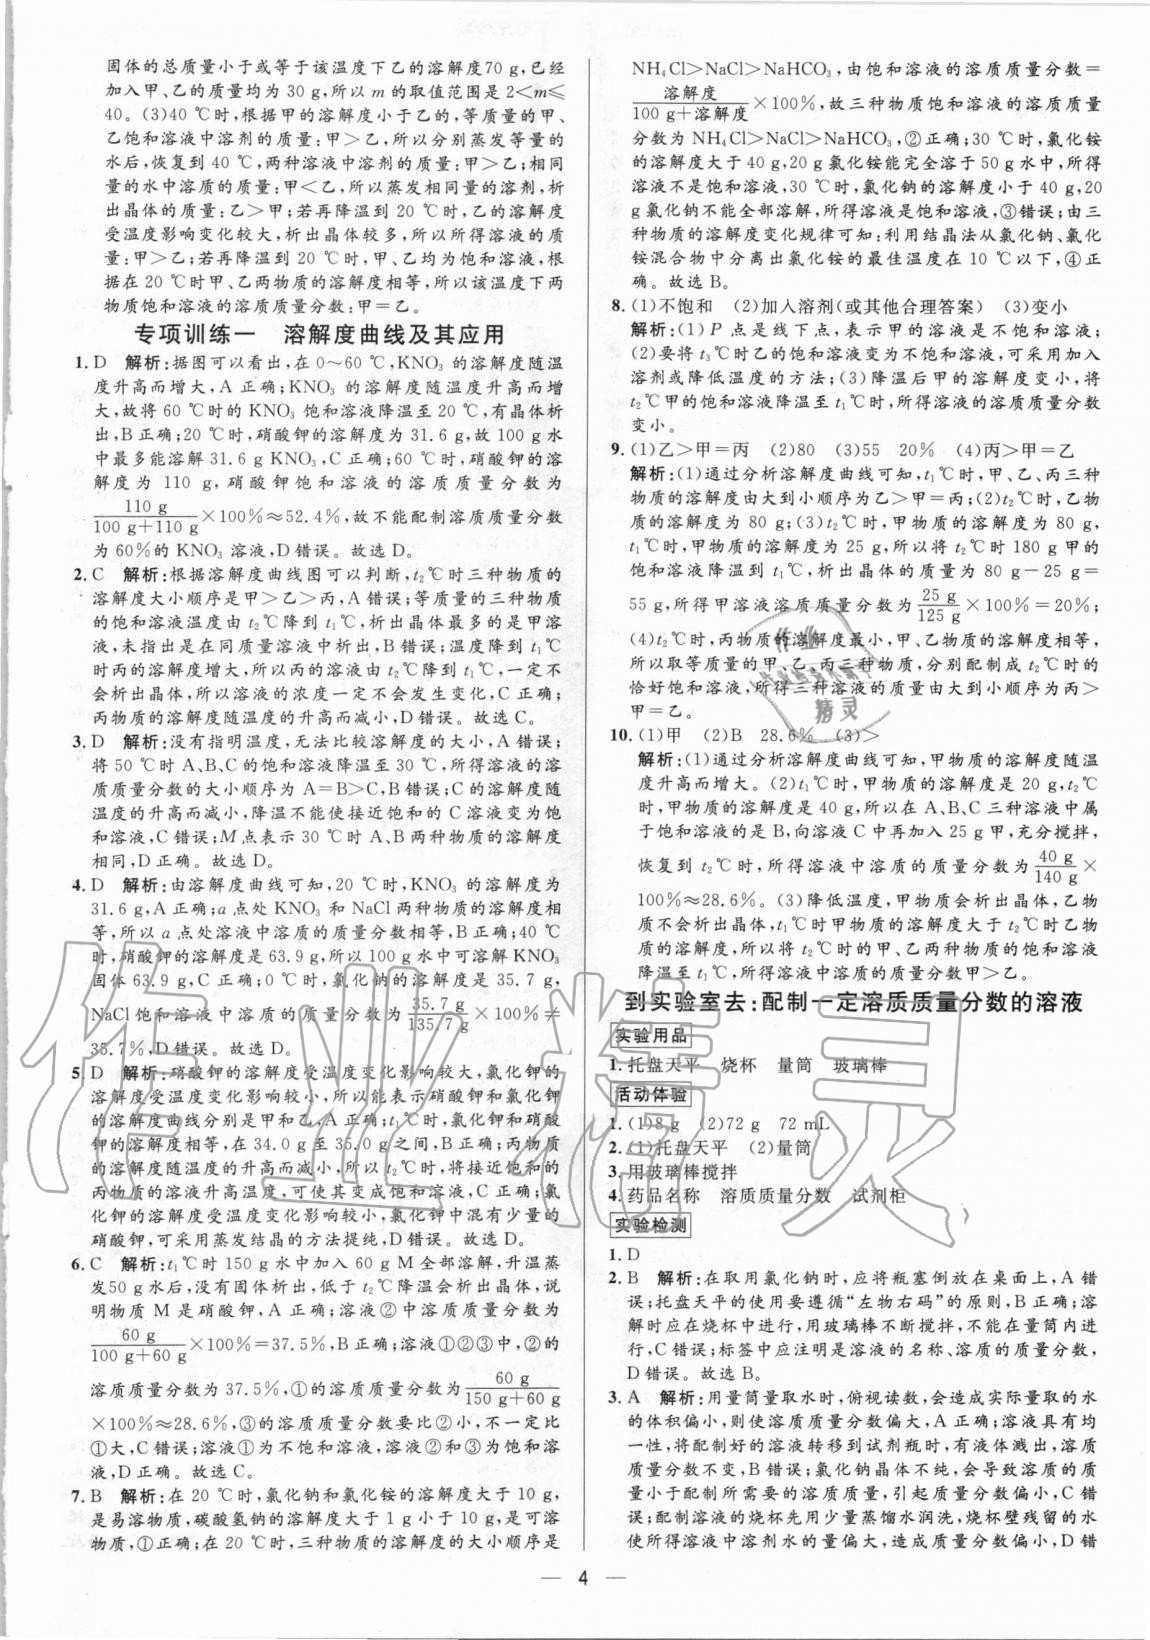 固体的总质量小于或等于该温度下乙的溶解度70 g,已经
加入甲、乙的质量均为 30 g,所以 m 的取值范围是 2<m≤
40。(3)40 ℃时,根据甲的溶解度小于乙的,等质量的甲、
乙饱和溶液中溶剂的质量:甲>乙,所以分别蒸发等量的
水后,恢复到 40 ℃,两种溶液中溶剂的质量:甲>乙;相同
质量的水中溶质的质量:甲<乙,所以蒸发相同量的溶剂,析
出晶体的质量:乙>甲;若再降温到 20 ℃时,乙的溶解度
受温度影响变化较大,析出晶体较多,所以所得溶液的质
量:甲>乙;若再降温到 20 ℃时,甲、乙均为饱和溶液,根
据在 20 ℃时甲、乙两物质的溶解度相等,所以该温度下两
物质饱和溶液的溶质质量分数:甲=乙。
专项训练一 溶解度曲线及其应用
1. D 解析:据图可以看出,在 0～60 ℃,KNO₃ 的溶解度随温
度升高而增大,A 正确;KNO₃ 的溶解度随温度升高而增
大,故将 60 ℃时的 KNO₃ 饱和溶液降温至 20 ℃,有晶体析
出,B正确;20 ℃时,硝酸钾的溶解度为 31.6 g,故 100 g水
中最多能溶解 31.6 g KNO₃,C 正确;60 ℃时,硝酸钾的溶
解度为 110 g,硝酸钾饱和溶液的溶质质量分数为
110 g/(100 g+110 g)×100%≈52.4%,故不能配制溶质质量分数
为60%的 KNO₃ 溶液,D 错误。故选 D。
2. C 解析:根据溶解度曲线图可以判断,t₂℃时三种物质的
溶解度大小顺序是甲>乙>丙,A 错误;等质量的三种物质
的饱和溶液温度由 t₂℃降到 t₁℃,析出晶体最多的是甲溶
液,未指出是在同质量溶液中析出,B 错误;温度降到 t₁℃
时丙的溶解度增大,所以丙的溶液由 t₂℃降到 t₁℃,一定不
会析出晶体,所以溶液的浓度一定不会发生变化,C 正确;
丙物质的溶解度随温度的升高而减小,D 错误。故选 C。
3. D 解析:没有指明温度,无法比较溶解度的大小,A错误;
将 50 ℃时 A、B、C 的饱和溶液降温至 30 ℃,所得溶液的溶
质质量分数的大小顺序为 A=B>C,B 错误;C 的溶解度随
温度的升高而减小,降温不能使接近饱和的 C 溶液变为饱
和溶液,C 错误;M点表示 30 ℃时 A、B两种物质的溶解度
相同,D 正确。故选 D。
4. D 解析:由溶解度曲线可知,20 ℃时,KNO₃ 的溶解度为
31.6 g,A 正确;a 点处 KNO₃ 和 NaCl 两种物质的溶解度相
等,所以 a 点处溶液中溶质的质量分数相等,B正确;40 ℃
时,硝酸钾的溶解度是 63.9 g,所以 100 g水中可溶解 KNO₃
固体 63.9 g,C 正确;0 ℃时,氯化钠的溶解度是 35.7 g,
NaCl饱和溶液中溶质的质量分数为 35.7 g/135.7 g×100%≠
35.7%,D 错误。故选 D。
5. D 解析:硝酸钾的溶解度受温度变化影响较大,氯化钾的
溶解度受温度变化影响较小,所以能表示硝酸钾和氯化钾
的溶解度曲线分别是甲和乙,A 正确;t₁℃时,氯化钾和硝酸
钾的溶解度相等,在 34.0 g 至 35.0 g 之间,B 正确;丙物质的
溶解度随温度的升高而减小,所以 t₂℃时,将接近饱和的
丙物质的溶液升高温度,可使其变成饱和溶液,C 正确;氯
化钾的溶解度受温度变化影响较小,氯化钾中混有少量的
硝酸钾,可采用蒸发结晶的方法提纯,D 错误。故选 D。
6. C 解析:t₁℃时 150 g 水中加入 60 g M 全部溶解,升温蒸
发50 g水后,没有固体析出,低于 t₂℃降温会析出晶体,说
明物质 M 是硝酸钾,A 正确;溶液②中溶质质量分数为
60 g/(100 g+60 g)×100%=37.5%,B 正确;溶液①②③中,②的
溶质质量分数为 37.5%,①的溶质质量分数为 60 g/(150 g+60 g)
×100%≈28.6%,③的溶质质量分数要比②小,不一定比
①大,C 错误;溶液①为不饱和溶液,溶液②③为饱和溶
液,D 正确。故选 C。
7. B 解析:在 20 ℃时,氯化钠和氯化铵的溶解度大于 10 g,
是易溶物质,碳酸氢钠的溶解度大于 1 g 小于 10 g,是可溶
物质,①正确;在 20 ℃时,三种物质的溶解度的大小顺序是
NH₄Cl>NaCl>NaHCO₃,由饱和溶液的溶质质量分数=
溶解度/(100 g+溶解度)×100%,故三种物质饱和溶液的溶质质量
分数为 NH₄Cl>NaCl>NaHCO₃,②正确;30 ℃时,氯化铵
的溶解度大于 40 g,20 g 氯化铵能完全溶于 50 g水中,所得
溶液不是饱和溶液,30 ℃时,氯化钠的溶解度小于 40 g,20
g 氯化钠不能全部溶解,所得溶液是饱和溶液,③错误;由三
种物质的溶解度变化规律可知:利用结晶法从氯化钠、氯化
铵混合物中分离出氯化铵的最佳温度在 10 ℃以下,④正
确。故选 B。
8. (1)不饱和 (2)加入溶剂(或其他合理答案) (3)变小
解析:(1)P 点是线下点,表示甲的溶液是不饱和溶液;
(2)要将 t₃℃时乙的饱和溶液变为不饱和溶液,可采用加入
溶剂或降低温度的方法;(3)降温后甲的溶解度变小,将
t₂℃甲的饱和溶液降温至 t₁℃时,所得溶液的溶质质量分数
变小。
9. (1)乙>甲=丙 (2)80 (3)55 20% (4)丙>甲=乙
解析:(1)通过分析溶解度曲线可知,t₁℃时,甲、乙、丙三种
物质的溶解度由大到小顺序为乙>甲=丙;(2)t₂℃时,乙物
质的溶解度为 80 g;(3)t₂℃时,甲物质的溶解度为 80 g,
t₁℃时,甲物质的溶解度为 25 g,所以将 t₂℃时 180 g 甲的
饱和溶液降温到 t₁℃,析出晶体的质量为 80 g-25 g=
55 g,所得甲溶液溶质质量分数为 25 g/125 g×100%=20%;
(4)t₂℃时,丙物质的溶解度最小,甲、乙物质的溶解度相等,
所以取等质量的甲、乙、丙三种物质,分别配制成 t₂℃时的
恰好饱和溶液,所得三种溶液的质量由大到小顺序为丙>
甲=乙。
10. (1)甲 (2)B 28.6% (3)>
解析:(1)通过分析溶解度曲线可知,甲物质的溶解度随温
度升高而增大。(2)t₁℃时,甲物质的溶解度是 20 g,t₂℃
时,甲物质的溶解度是 40 g,所以在 A、B、C 三种溶液中属
于饱和溶液的是 B,向溶液 C 中再加入 25 g 甲,充分搅拌,
恢复到 t₂℃时,所得溶液中溶质的质量分数为 40 g/140 g×
100%≈28.6%。(3)降低温度,甲物质会析出晶体,乙物
质不会析出晶体,t₁℃时甲物质的溶解度大于 t₂℃时乙物
质的溶解度,所以将 t₂℃时的甲、乙两种物质的饱和溶液
降温至 t₁℃,所得溶液中溶质的质量分数甲>乙。
到实验室去:配制一定溶质质量分数的溶液
实验用品
1. 托盘天平 烧杯 量筒 玻璃棒
活动体验
1. (1)8 g (2)72 g 72 mL
2. (1)托盘天平 (2)量筒
3. 用玻璃棒搅拌
4. 药品名称 溶质质量分数 试剂柜
实验检测
1. D
2. B 解析:在取用氯化钠时,应将瓶塞倒放在桌面上,A 错
误;托盘天平的使用要遵循“左物右码”的原则,B正确;溶
解时应在烧杯中进行,用玻璃棒不断搅拌,不能在量筒内进
行,C 错误;标签中应注明是溶液的名称、溶质的质量分数,
D 错误。故选 B。
3. A 解析:用量筒量取水时,俯视读数,会造成实际量取的水
的体积偏小,则使溶质质量分数偏大,A 正确;溶液具有均
一性,将配制好的溶液转移到试剂瓶时,有液体溅出,溶质
质量分数不变,B 错误;氯化钠晶体不纯,会导致溶质的质
量小于配制所需要的溶质质量,引起质量分数偏小,C 错
误;配制溶液的烧杯先用少量蒸馏水润洗,烧杯壁残留的水
使所配溶液中溶剂水的量偏大,造成质量分数偏小,D 错
— 4 —
作业精灵
作业
精灵